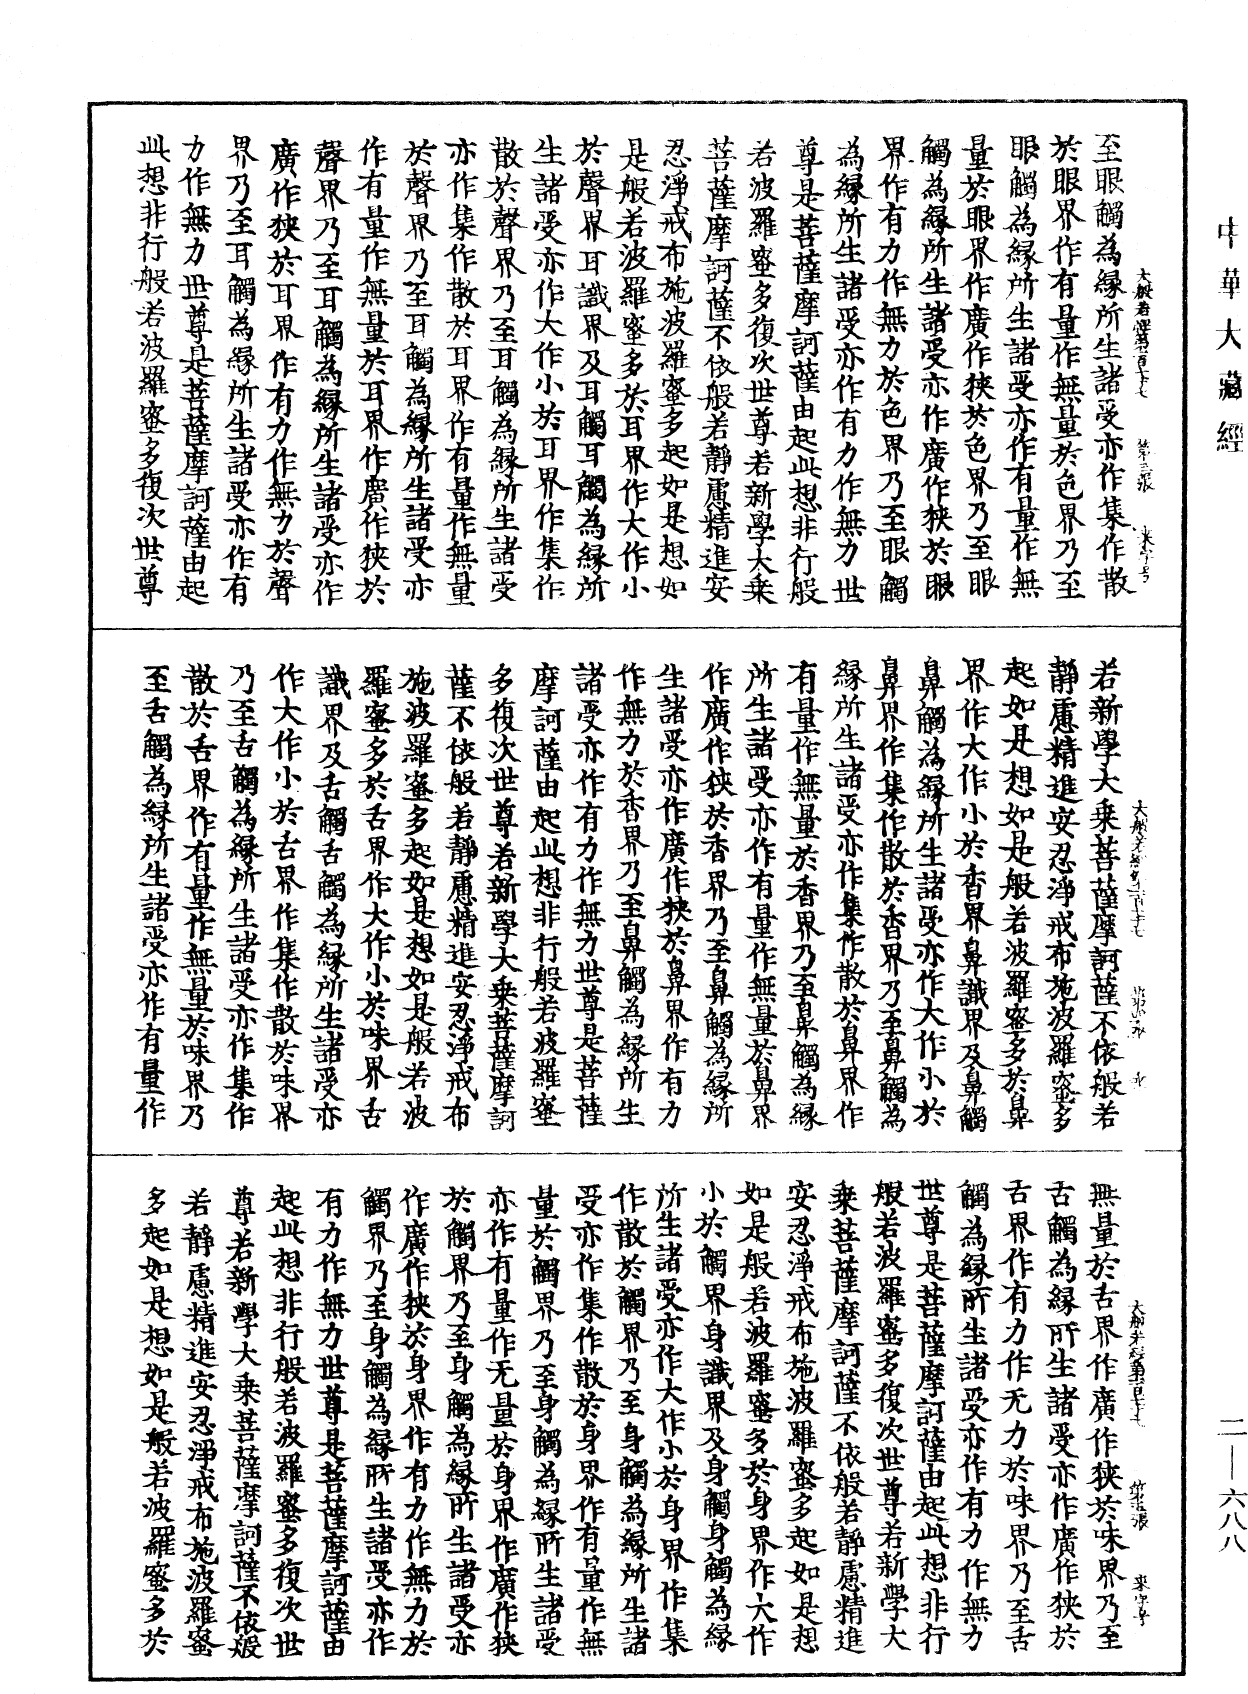 中華大藏經
至眼觸為緣所生諸受亦作集作散
於眼界作有量作無量於色界乃至
眼觸為緣所生諸受亦作有量作無
量於眼界作廣作狹於色界乃至眼
觸為緣所生諸受亦作廣作狹於眼
界作有力作無力於色界乃至眼觸
為緣所生諸受亦作有力作無力世
尊是菩薩摩訶薩由起此想非行般
若波羅蜜多復次世尊若新學大乘
菩薩摩訶薩不依般若靜慮精進安
忍淨戒布施波羅蜜多起如是想如
是般若波羅蜜多於耳界作大作小
於聲界耳識界及耳觸耳觸為緣所
生諸受亦作大作小於耳界作集作
散於聲界乃至耳觸為緣所生諸受
亦作集作散於耳界作有量作無量
於聲界乃至耳觸為緣所生諸受亦
作有量作無量於耳界作廣作狹於
聲界乃至耳觸為緣所生諸受亦作
廣作狹於耳界作有力作無力於聲
界乃至耳觸為緣所生諸受亦作有
力作無力世尊是菩薩摩訶薩由起
此想非行般若波羅蜜多復次世尊
若新學大乘菩薩摩訶薩不依般若
靜慮精進安忍淨戒布施波羅蜜多
起如是想如是般若波羅蜜多於鼻
界作大作小於香界鼻識界及鼻觸
鼻觸為緣所生諸受亦作大作小於
鼻界作集作散於香界乃至鼻觸為
緣所生諸受亦作集作散於鼻界作
有量作無量於香界乃至鼻觸為緣
所生諸受亦作有量作無量於鼻界
作廣作狹於香界乃至鼻觸為緣所
生諸受亦作廣作狹於鼻界作有力
作無力於香界乃至鼻觸為緣所生
諸受亦作有力作無力世尊是菩薩
摩訶薩由起此想非行般若波羅蜜
多復次世尊若新學大乘菩薩摩訶
薩不依般若靜慮精進安忍淨戒布
施波羅蜜多起如是想如是般若波
羅蜜多於舌界作大作小於味界舌
識界及舌觸舌觸為緣所生諸受亦
作大作小於舌界作集作散於味界
乃至舌觸為緣所生諸受亦作集作
散於舌界作有量作無量於味界乃
至舌觸為緣所生諸受亦作有量作
無量於舌界作廣作狹於味界乃至
舌觸為緣所生諸受亦作廣作狹於
舌界作有力作无力於味界乃至舌
觸為緣所生諸受亦作有力作無力
世尊是菩薩摩訶薩由起此想非行
般若波羅蜜多復次世尊若新學大
乘菩薩摩訶薩不依般若靜慮精進
安忍淨戒布施波羅蜜多起如是想
如是般若波羅蜜多於身界作大作
小於觸界身識界及身觸身觸為緣
所生諸受亦作大作小於身界作集
作散於觸界乃至身觸為緣所生諸
受亦作集作散於身界作有量作無
量於觸界乃至身觸為緣所生諸受
亦作有量作无量於身界作廣作狹
於觸界乃至身觸為緣所生諸受亦
作廣作狹於身界作有力作無力於
觸界乃至身觸為緣所生諸受亦作
有力作無力世尊是菩薩摩訶薩由
起此想非行般若波羅蜜多復次世
尊若新學大乘菩薩摩訶薩不依般
若靜慮精進安忍淨戒布施波羅蜜
多起如是想如是般若波羅蜜多於
二—六八八